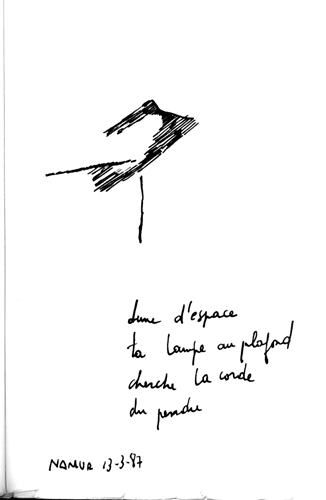 dune d'espace
ta lampe au plafond
cherche la corde
du pendu
NAMUR 13-3-87